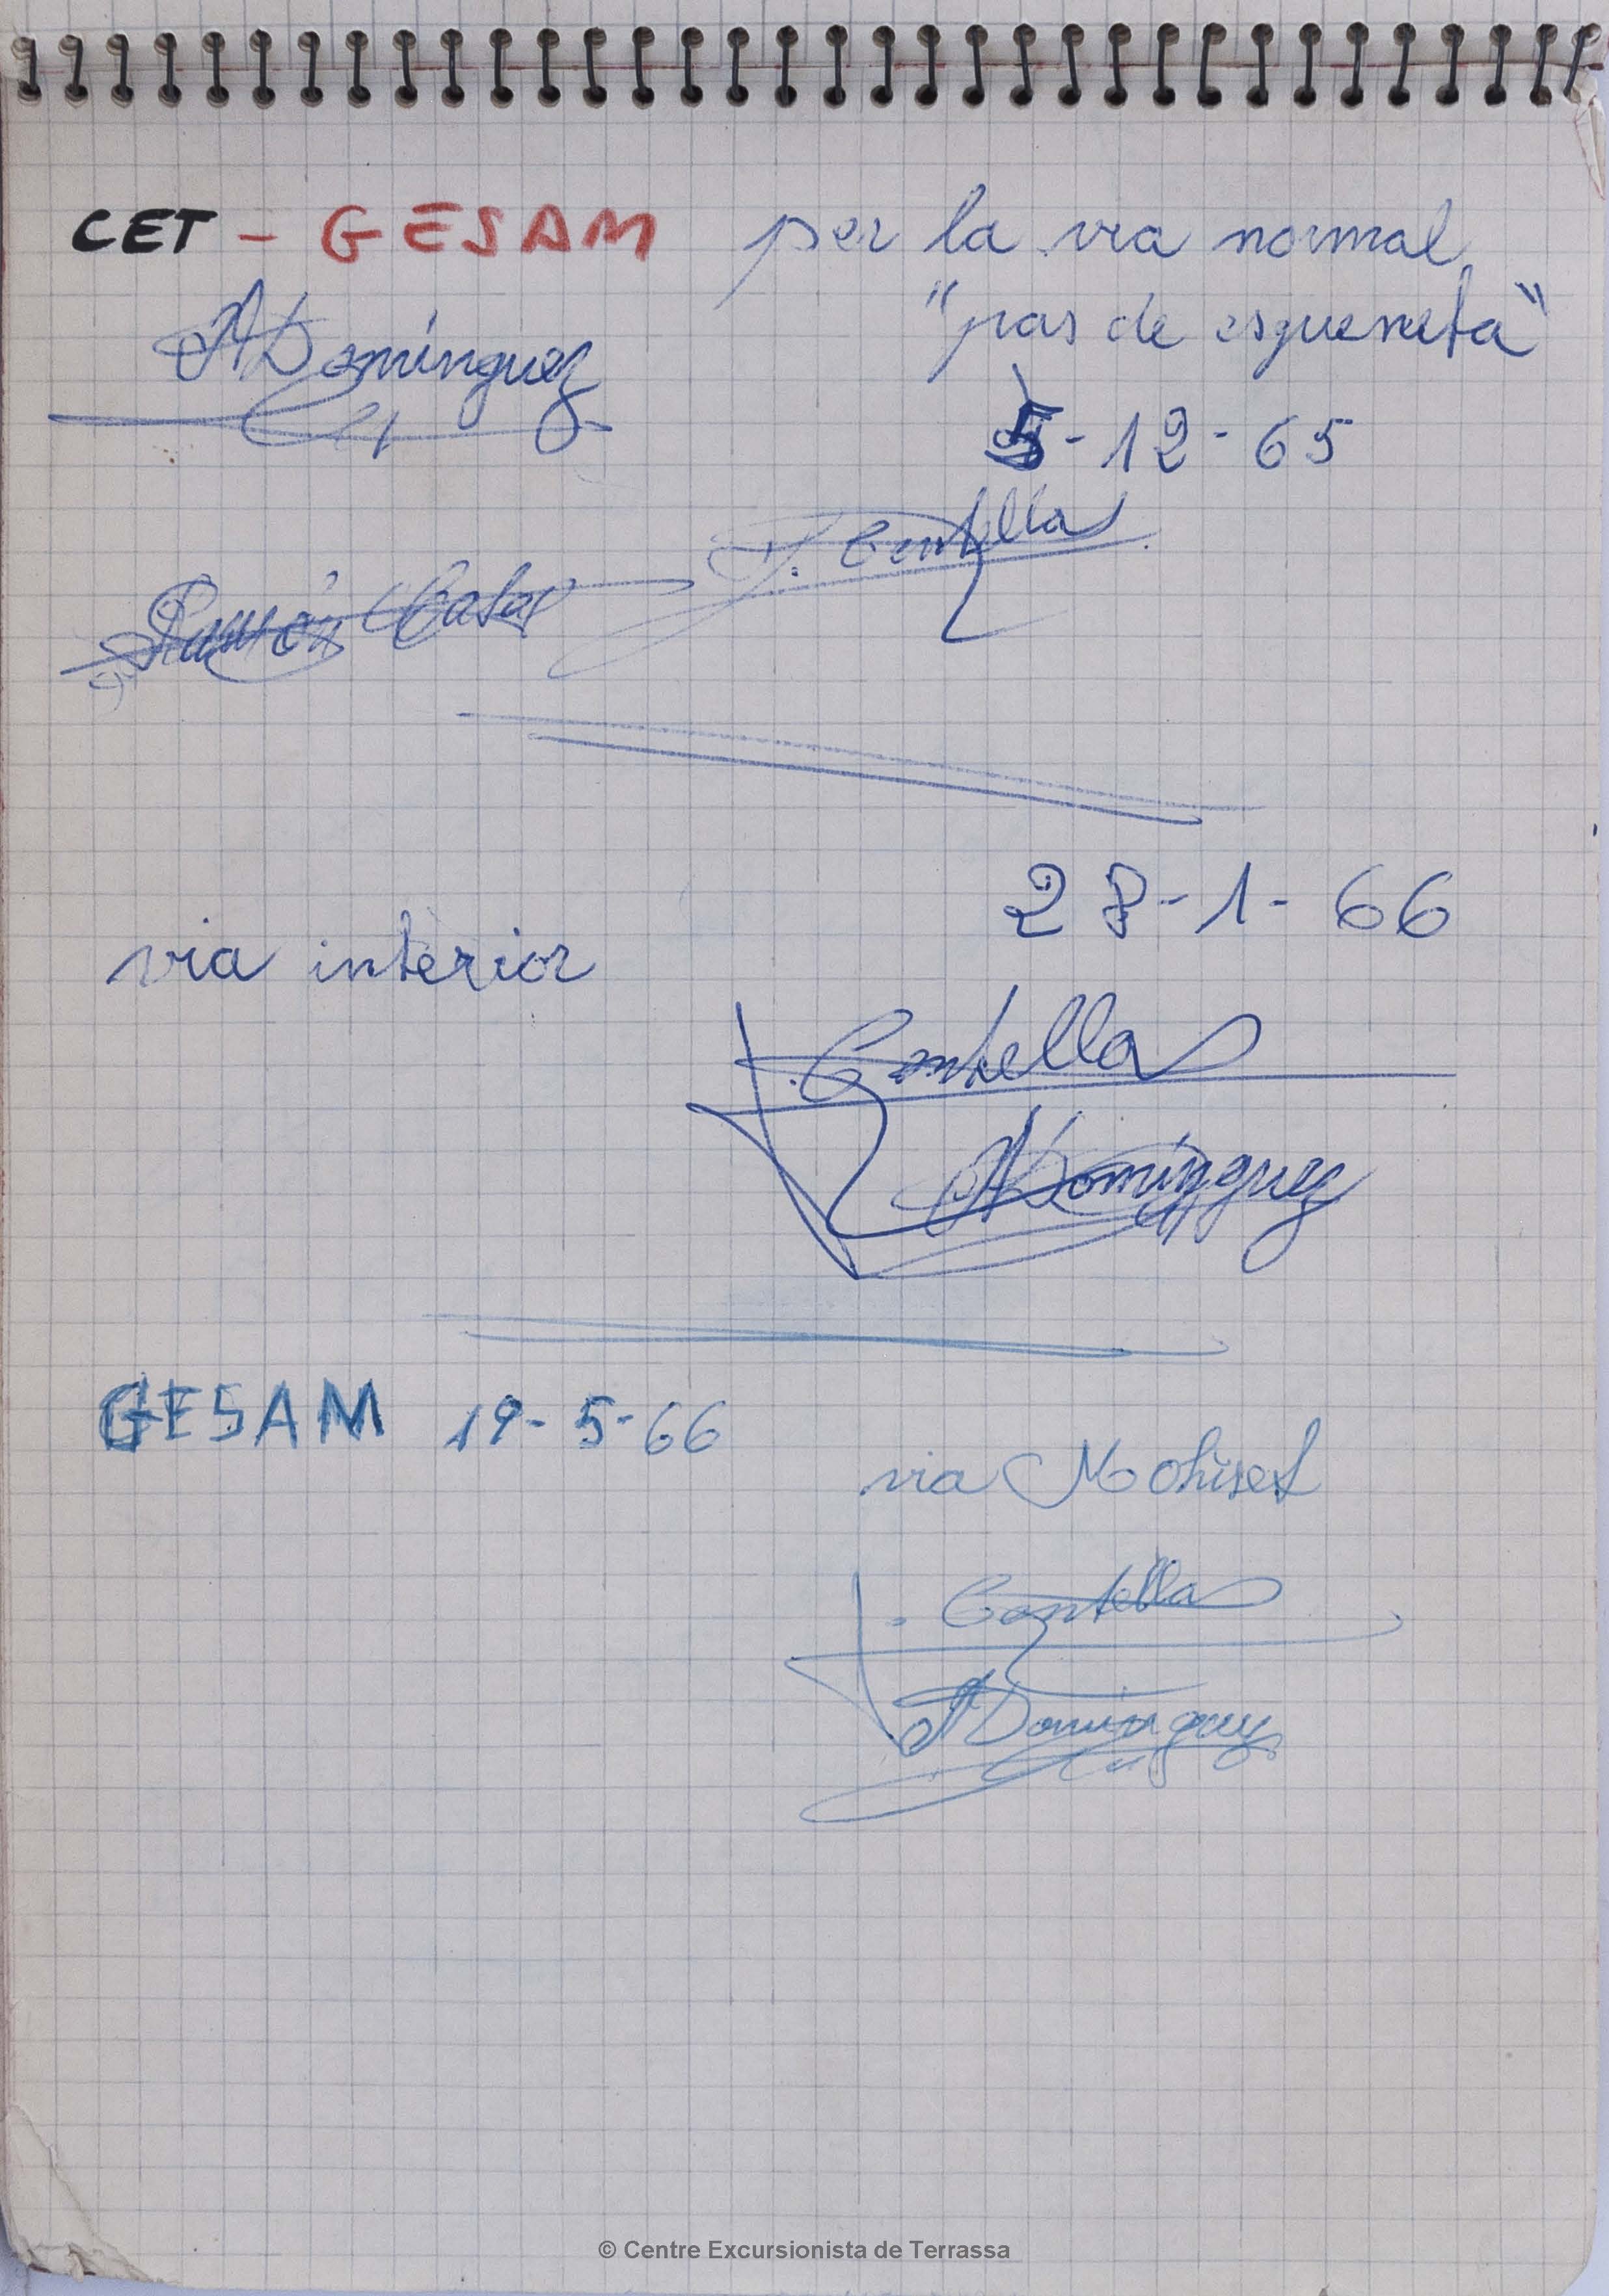 CET - GESAM per la via normal
"pas de esqueneta"
ADominguez
5-12-65
J. Centella
Ramón Casas
28-1-66
via interior
J. Centella
ADominguez
GESAM 19-5-66
via Mohiset
J. Centella
ADominguez
© Centre Excursionista de Terrassa